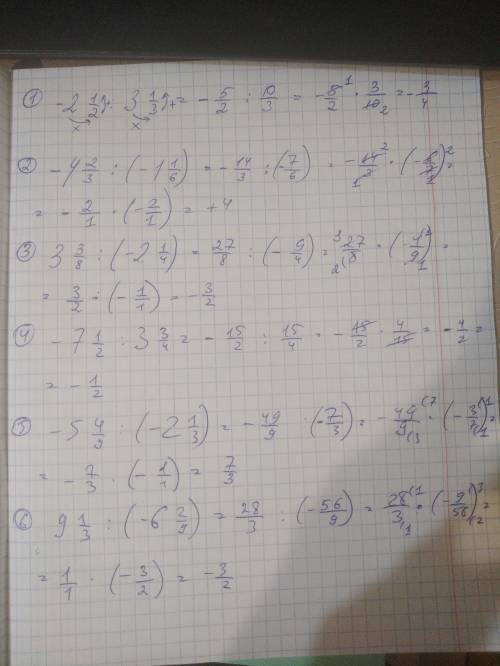 ① -2 1/2 : 3 1/3 = - 5/2 : 10/3 = - 5/2 · 3/10 = - 3/4
② -4 2/3 : (-1 1/6) = - 14/3 : (- 7/6) = - 14/3 · (- 6/7) =
= - 2/1 · (- 2/1) = +4
③ 3 3/8 : (-2 1/4) = 27/8 : (- 9/4) = 27/8 · (- 4/9) =
= 3/2 · (- 1/1) = - 3/2
④ -7 1/2 : 3 3/4 = - 15/2 : 15/4 = - 15/2 · 4/15 = - 4/2 =
= - 1/2
⑤ -5 4/9 : (-2 1/3) = - 49/9 : (- 7/3) = - 49/9 · (- 3/7) =
= - 7/3 · (- 1/1) = 7/3
⑥ 9 1/3 : (-6 2/9) = 28/3 : (- 56/9) = 28/3 · (- 9/56) =
= 1/1 · (- 3/2) = - 3/2